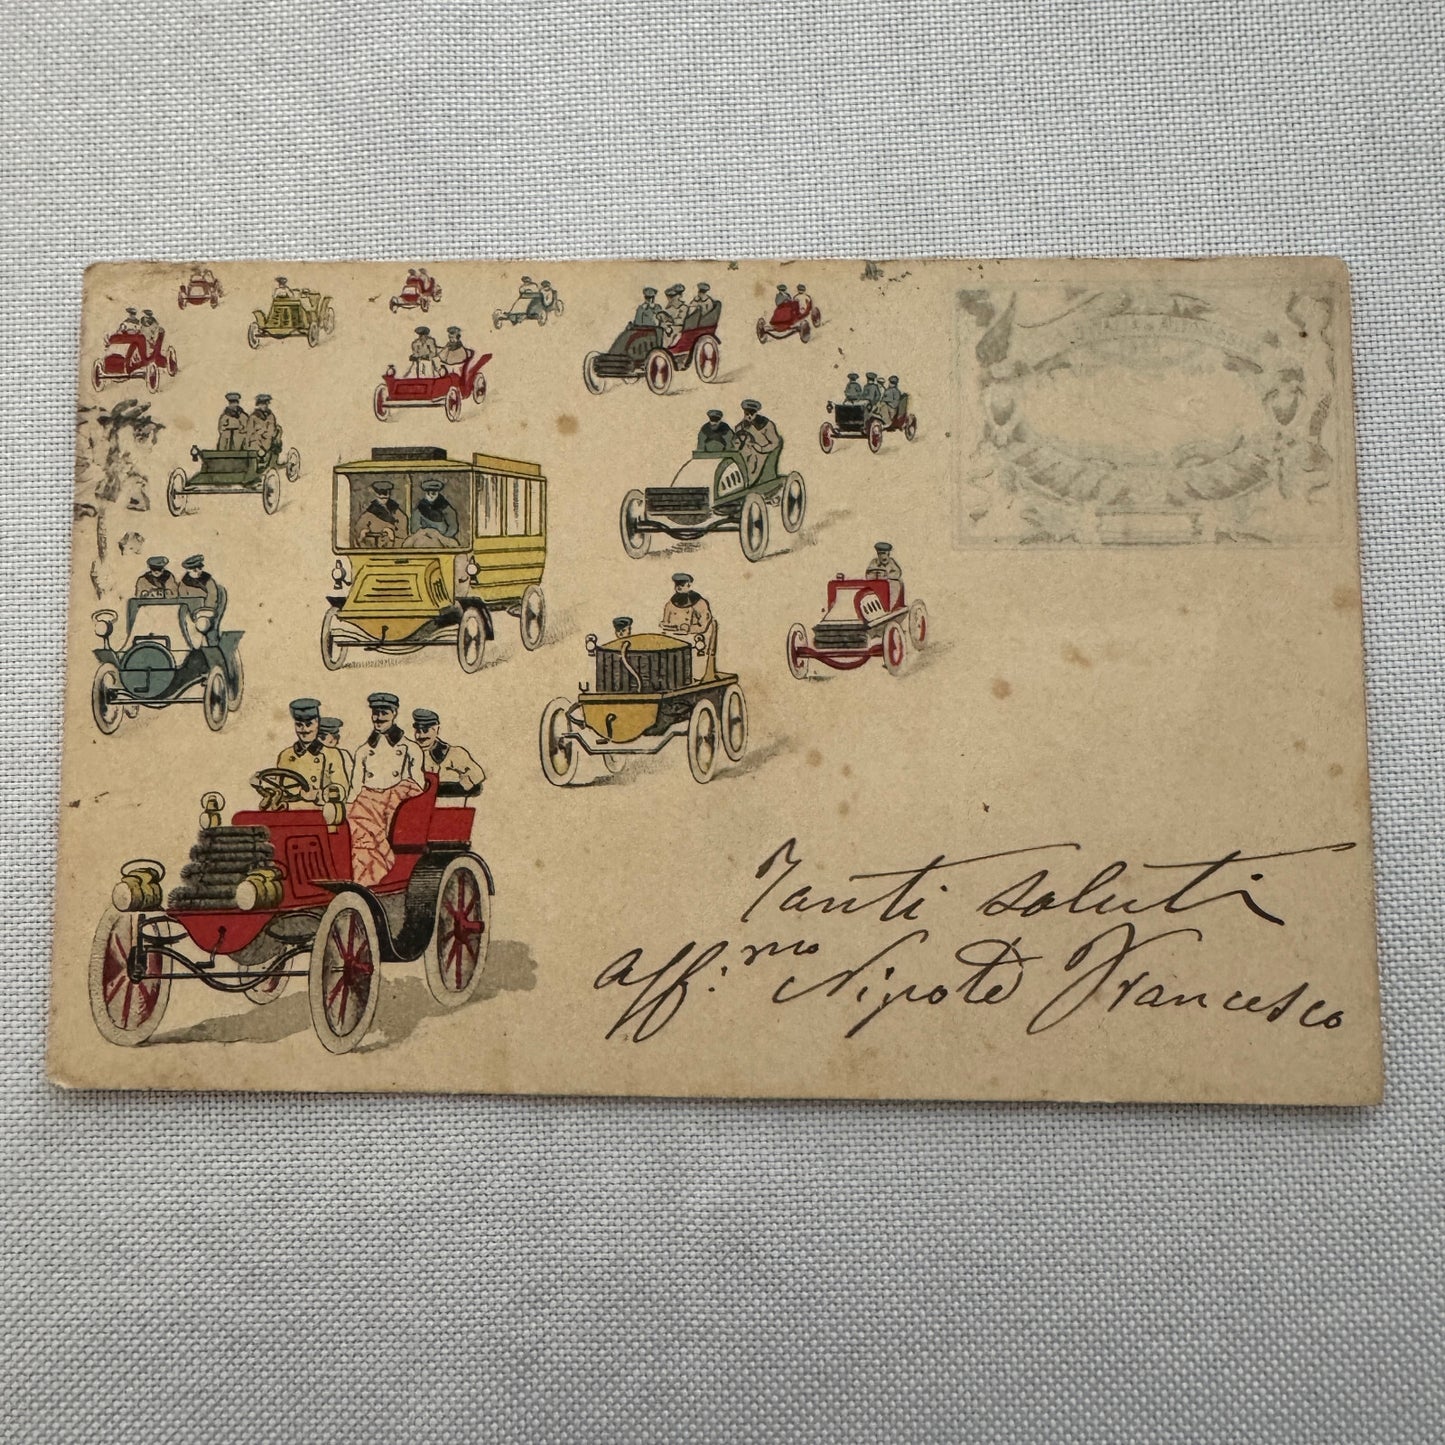 Tanti saluti
Aff.mo Nipote Francesco